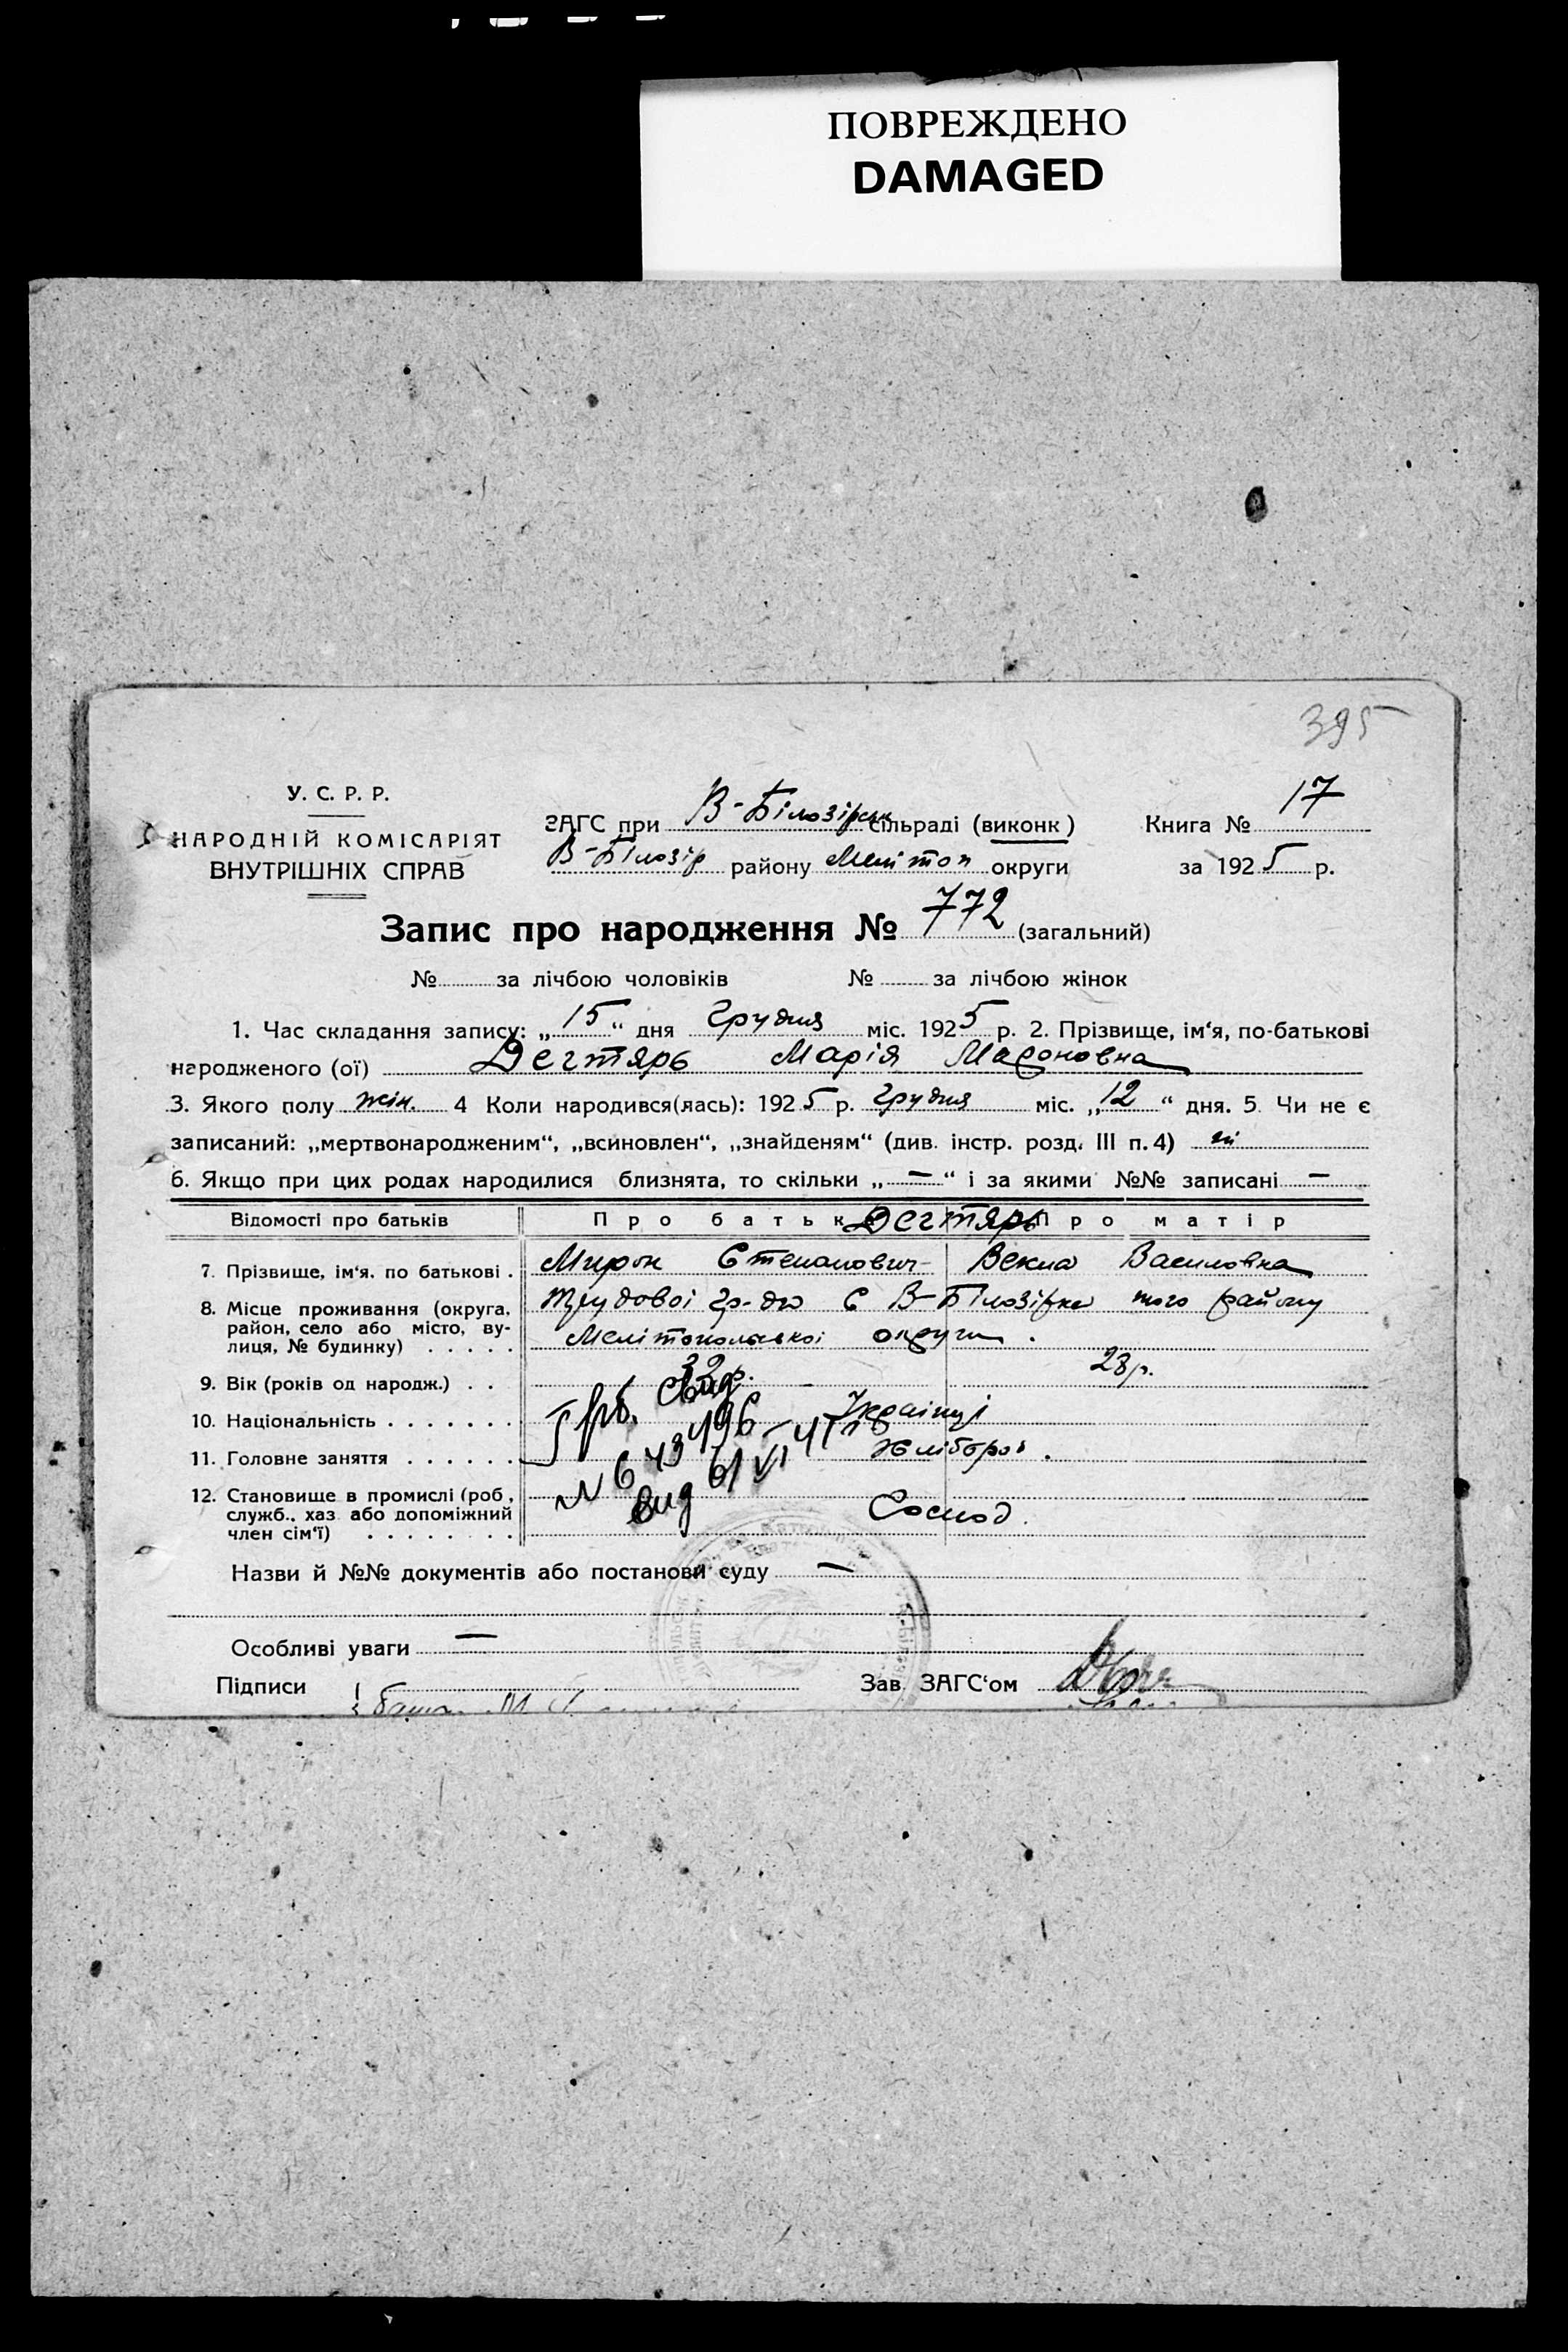 ПОВРЕЖДЕНО
DAMAGED
395
У. С. Р. Р.
НАРОДНІЙ КОМІСАРІЯТ
ВНУТРІШНІХ СПРАВ
ЗАГС при В-Білозірськ сільраді (виконк) Книга № 17
В-Білозір району Мелітоп округи за 1925 р.
Запис про народження № 772 (загальний)
№ за лічбою чоловіків № за лічбою жінок
1. Час складання запису: „15“ дня Грудня міс. 1925 р. 2. Прізвище, ім‘я, по-батькові
народженого (ої) Дегтярь Марія Мароновна
3. Якого полу жін. 4 Коли народився(лась): 1925 р. Грудня міс. „12“ дня. 5 Чи не є
записаний: „мертвонародженим“, „всиновлен“, „знайденям“ (див. інстр. розд. III п. 4) ні
6. Якщо при цих родах народилися близнята, то скільки „—“ і за якими №№ записані —
Відомості про батьків Про батьк Дегтярь Про матір
7. Прізвище, ім‘я. по батькові . Мирон Степанович Векла Василовна
8. Місце проживання (округа, Трудової гр-да С В-Білозірка того району
район, село або місто, ву-
лиця, № будинку) . . . . . Мелітопольської округи .
9. Вік (років од народж.) . . 32 р. 28 р.
10. Національність . . . . . . . Українці
11. Головне заняття . . . . . . Хлібороб .
12. Становище в промислі (роб,
служб., хаз або допоміжний Господ.
член сім‘ї) . . . . . . . .
Назви й №№ документів або постанови суду —
Особливі уваги —
Підписи Зав. ЗАГС‘ом